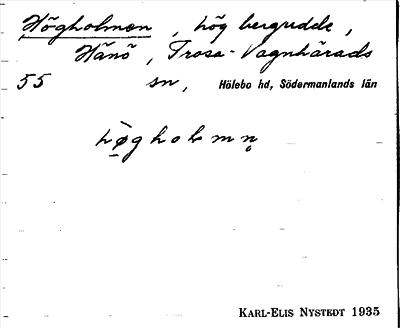 Högholmen, hög bergudde,
Hånö, Trosa-Vagnhärads
55 sn, Hölebo hd, Södermanlands län
hø̀gholmn̥
KARL-ELIS NYSTEDT 1935